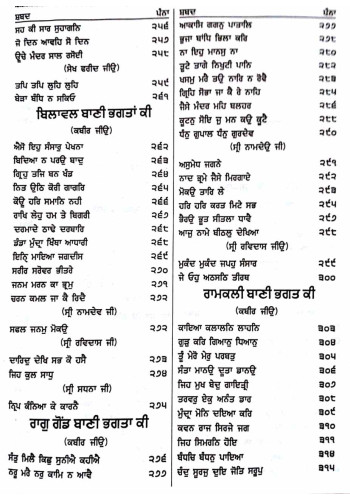 ਸ਼ਬਦ ਪੰਨਾ
ਸਹ ਕੀ ਸਾਰ ਸੁਹਾਗਨਿ ੨੫੬
ਜੋ ਦਿਨ ਆਵਹਿ ਸੋ ਦਿਨ ੨੫੭
ਊਚੇ ਮੰਦਰ ਸਾਲ ਰਸੋਈ ੨੫੮
(ਸ਼ੇਖ ਫਰੀਦ ਜੀਉ)
ਤਪਿ ਤਪਿ ਲੁਹਿ ਲੁਹਿ ੨੫੯
ਬੇੜਾ ਬੰਧਿ ਨ ਸਕਿਓ ੨੬੧
ਬਿਲਾਵਲ ਬਾਣੀ ਭਗਤਾਂ ਕੀ
(ਕਬੀਰ ਜੀਉ)
ਐਸੋ ਇਹੁ ਸੰਸਾਰੁ ਪੇਖਨਾ ੨੬੨
ਬਿਦਿਆ ਨ ਪਰਉ ਬਾਦੁ ੨੬੩
ਗ੍ਰਿਹੁ ਤਜਿ ਬਨ ਖੰਡ ੨੬੪
ਨਿਤ ਉਠਿ ਕੋਰੀ ਗਾਗਰਿ ੨੬੫
ਕੋਊ ਹਰਿ ਸਮਾਨਿ ਨਹੀ ੨੬੬
ਰਾਖਿ ਲੇਹੁ ਹਮ ਤੇ ਬਿਗਰੀ ੨੬੭
ਦਰਮਾਦੇ ਠਾਢੇ ਦਰਬਾਰਿ ੨੬੮
ਡੰਡਾ ਮੁੰਦ੍ਰਾ ਖਿੰਥਾ ਆਧਾਰੀ ੨੬੮
ਇਨ੍ਹਿ ਮਾਇਆ ਜਗਦੀਸ ੨੬੯
ਸਰੀਰ ਸਰੋਵਰ ਭੀਤਰੇ ੨੭੦
ਜਨਮ ਮਰਨ ਕਾ ਭ੍ਰਮੁ ੨੭੧
ਚਰਨ ਕਮਲ ਜਾ ਕੈ ਰਿਦੈ ੨੭੨
(ਸ੍ਰੀ ਨਾਮਦੇਵ ਜੀ)
ਸਫਲ ਜਨਮੁ ਮੋਕਉ ੨੭੨
(ਸ੍ਰੀ ਰਵਿਦਾਸ ਜੀ)
ਦਾਰਿਦੁ ਦੇਖਿ ਸਭ ਕੋ ਹਸੈ ੨੭੩
ਜਿਹ ਕੁਲ ਸਾਧੁ ੨੭੪
(ਸ੍ਰੀ ਸਧਨਾ ਜੀ)
ਨ੍ਰਿਪ ਕੰਨਿਆ ਕੇ ਕਾਰਨੈ ੨੭੫
ਰਾਗੁ ਗੋਂਡ ਬਾਣੀ ਭਗਤਾ ਕੀ
(ਕਬੀਰ ਜੀਉ)
ਸੰਤੁ ਮਿਲੈ ਕਿਛੁ ਸੁਨੀਐ ਕਹੀਐ ੨੭੬
ਨਰੂ ਮਰੈ ਨਰੁ ਕਾਮਿ ਨ ਆਵੈ ੨੭੭
ਸ਼ਬਦ ਪੰਨਾ
ਆਕਾਸਿ ਗਗਨੁ ਪਾਤਾਲਿ ੨੭੭
ਭੁਜਾ ਬਾਂਧਿ ਭਿਲਾ ਕਰਿ ੨੭੮
ਨਾ ਇਹੁ ਮਾਨਸੁ ਨਾ ੨੮੦
ਤੂਟੇ ਤਾਗੇ ਨਿਖੁਟੀ ਪਾਨਿ ੨੮੧
ਖਸਮੁ ਮਰੈ ਤਉ ਨਾਰਿ ਨ ਰੋਵੈ ੨੮੩
ਗ੍ਰਿਹਿ ਸੋਭਾ ਜਾ ਕੈ ਰੇ ਨਾਹਿ ੨੮੪
ਜੈਸੇ ਮੰਦਰ ਮਹਿ ਬਲਹਰ ੨੮੬
ਕੂਟਨੁ ਸੋਇ ਜੁ ਮਨ ਕਉ ਕੂਟੈ ੨੮੮
ਧੰਨੁ ਗੁਪਾਲ ਧੰਨੁ ਗੁਰਦੇਵ ੨੯੦
(ਸ੍ਰੀ ਨਾਮਦੇਉ ਜੀ)
ਅਸੁਮੇਧ ਜਗਨੇ ੨੯੧
ਨਾਦ ਭ੍ਰਮੇ ਜੈਸੇ ਮਿਰਗਾਏ ੨੯੨
ਮੋਕਉ ਤਾਰਿ ਲੇ ੨੯੩
ਹਰਿ ਹਰਿ ਕਰਤ ਮਿਟੇ ਸਭ ੨੯੪
ਭੈਰਉ ਭੂਤ ਸੀਤਲਾ ਧਾਵੈ ੨੯੬
ਆਜੁ ਨਾਮੇ ਬੀਠਲੁ ਦੇਖਿਆ ੨੯੮
(ਸ੍ਰੀ ਰਵਿਦਾਸ ਜੀਉ)
ਮੁਕੰਦ ਮੁਕੰਦ ਜਪਹੁ ਸੰਸਾਰ ੨੯੯
ਜੇ ਓਹੁ ਅਠਸਠਿ ਤੀਰਥ ੩੦੦
ਰਾਮਕਲੀ ਬਾਣੀ ਭਗਤ ਕੀ
(ਕਬੀਰ ਜੀਉ)
ਕਾਇਆ ਕਲਾਲਨਿ ਲਾਹਨਿ ੩੦੩
ਗੁੜੁ ਕਰਿ ਗਿਆਨੁ ਧਿਆਨੁ ੩੦੪
ਤੂੰ ਮੇਰੋ ਮੇਰੁ ਪਰਬਤੁ ੩੦੫
ਸੰਤਾ ਮਾਨਉ ਦੂਤਾ ਡਾਨਉ ੩੦੬
ਜਿਹ ਮੁਖ ਬੇਦੁ ਗਾਇਤ੍ਰੀ ੩੦੭
ਤਰਵਰੁ ਏਕੁ ਅਨੰਤ ਡਾਰ ੩੦੮
ਮੁੰਦ੍ਰਾ ਮੋਨਿ ਦਇਆ ਕਰਿ ੩੦੯
ਕਵਨ ਕਾਜ ਸਿਰਜੇ ਜਗ ੩੧੦
ਜਿਹ ਸਿਮਰਨਿ ਹੋਇ ੩੧੧
ਬੰਧਚਿ ਬੰਧਨੁ ਪਾਇਆ ੩੧੪
ਚੰਦੁ ਸੂਰਜੁ ਦੁਇ ਜੋਤਿ ਸਰੂਪੁ ੩੧੫